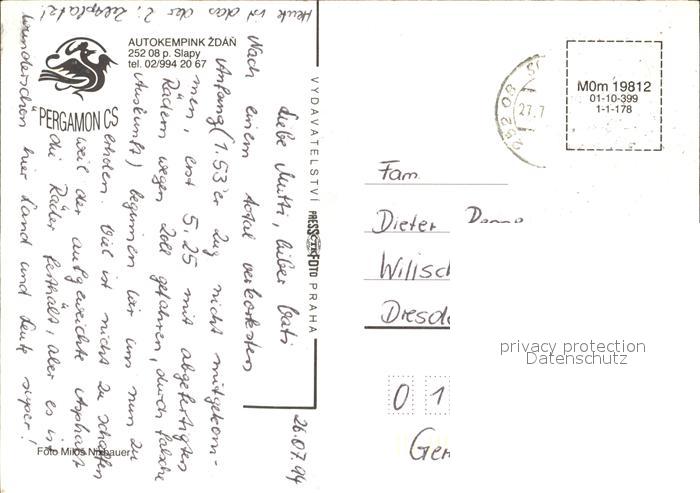 Heute ist das der 2. Zeltplatz!
AUTOKEMPINK ŽDÁŇ
252 08 p. Slapy
tel. 02/994 20 67
PERGAMON CS
VYDAVATELSTVÍ PRESSFOTO PRAHA
26.07.94
Liebe Mutti, lieber Vati
Nach einem total verkorksten
Anfang (1.53'er Zug nicht mitgekom-
men, erst 5.25 mit abgefertigten
Rädern wegen Zoll gefahren, durch falsche
Auskunft) beginnen wir uns nun zu
erholen. Viel ist nicht zu schaffen
weil der aufgeweichte Asphalt
die Räder festhält, aber es ist
wunderschön hier Land und Leute super!
Foto Miloš
252 08
27.7
M0m 19812
01-10-399
1-1-178
Fam
Dieter
Willisch
Dresde
01
Ger
privacy protection
Datenschutz